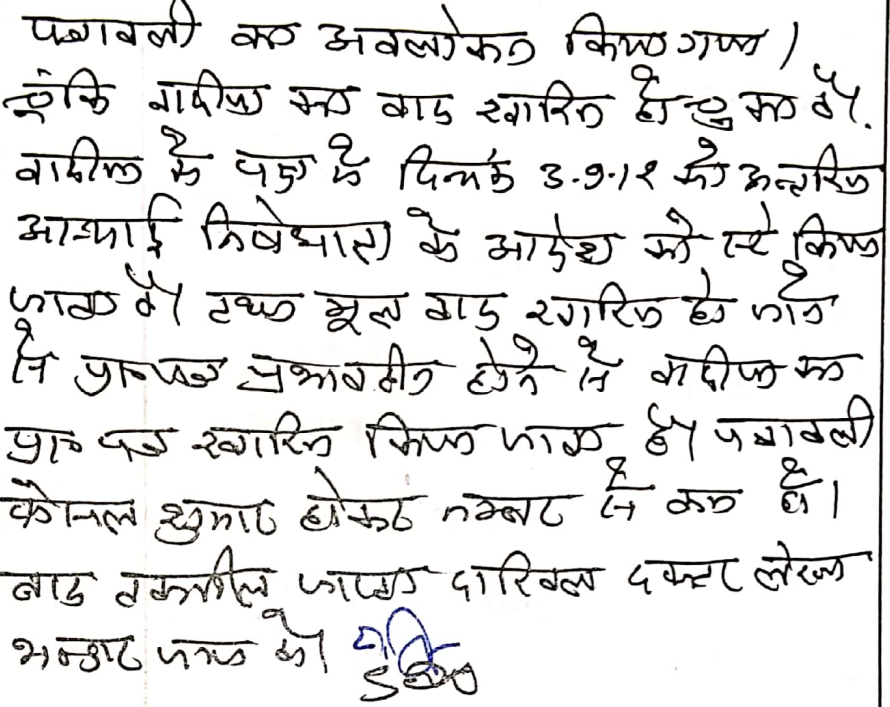 पत्रावली का अवलोकन किया गया।
चूंकि वादीया का वाद खारिज हो चुका है।
वादीया के पक्ष में दिनांक 3-9-12 को अन्तरिम
अस्थाई निषेधाज्ञा के आदेश को स्टे किया
जाता है। तथा मूल वाद खारिज हो जाने
से प्रा० पत्र प्रभावहीन होने से वादीया का
प्रा० पत्र खारिज किया जाता है। पत्रावली
फैसल शुमार होकर नम्बर से कम हो।
बाद तकमील जाप्ता दाखिल दफ्तर लेखा
भण्डार जमा हो।